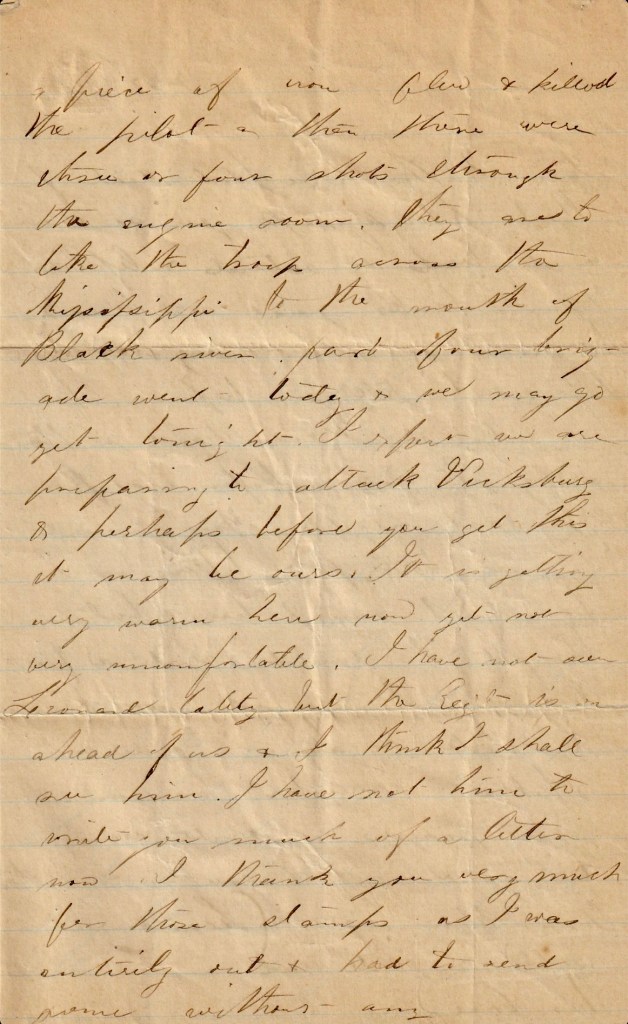 a piece of iron flew & killed
the pilot & then there were
three or four shots through
the engine room. They are to
take the troop across the
Mississippi to the mouth of
Black river. part of our brig-
ade went today & we may go
yet tonight. I expect we are
preparing to attack Vicksburg
& perhaps before you get this
it may be ours. It is getting
very warm here now yet not
very uncomfortable. I have not seen
Leonard lately but the Regt is on
ahead of us & I think I shall
see him. I have not time to
write you much of a letter
now I thank you very much
for those stamps as I was
entirely out & had to send
some without any